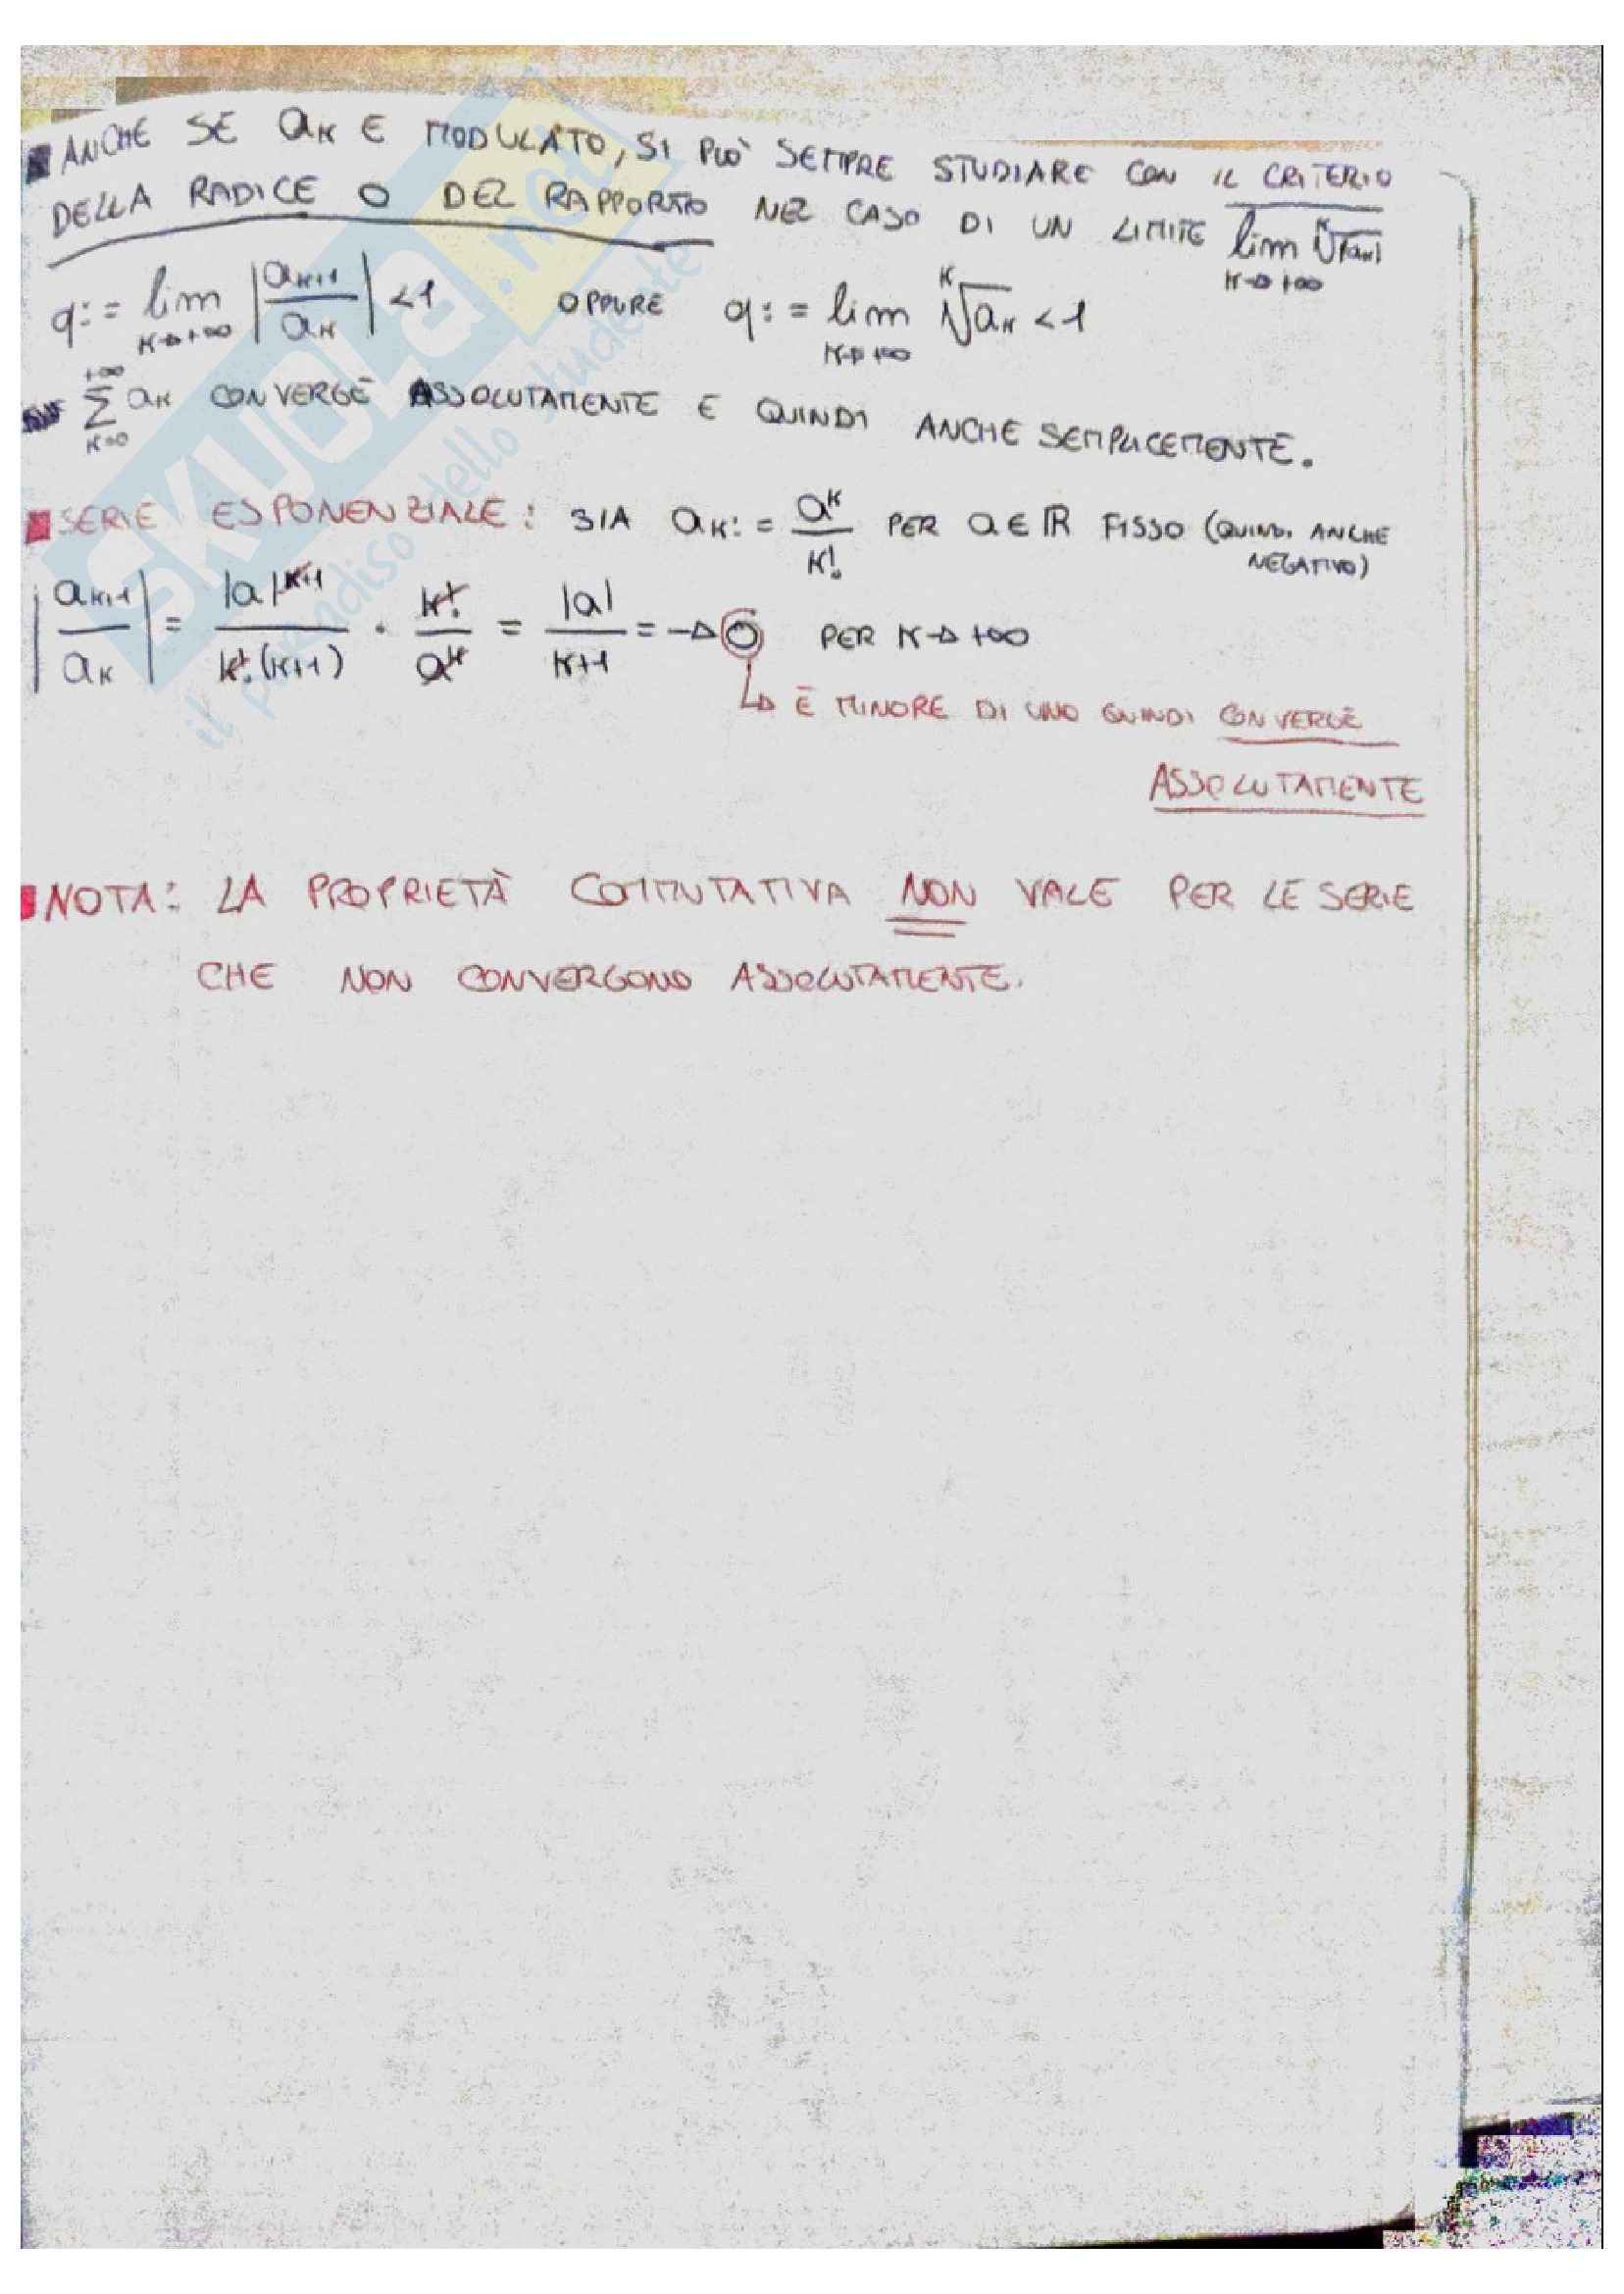 ANCHE SE aₖ E MODULATO, SI PUÒ SEMPRE STUDIARE CON IL CRITERIO
DELLA RADICE O DEL RAPPORTO NEL CASO DI UN LIMITE lim ᵏ√|aₖ| K→+∞
q:= lim K→+∞ |aₖ₊₁/aₖ| <1 OPPURE q:= lim K→+∞ ᵏ√aₖ <1
+∞ ∑ K=0 aₖ CONVERGE ASSOLUTAMENTE E QUINDI ANCHE SEMPLICEMENTE.
SERIE ESPONENZIALE: SIA aₖ:= aᵏ/K! PER a∈ℝ FISSO (QUINDI ANCHE
NEGATIVO)
|aₖ₊₁/aₖ| = |a|ᵏ⁺¹/K!(K+1) · K!/aᵏ = |a|/K+1 = →0 PER K→+∞
↳ È MINORE DI UNO QUINDI CONVERGE
ASSOLUTAMENTE
NOTA: LA PROPRIETÀ COMMUTATIVA NON VALE PER LE SERIE
CHE NON CONVERGONO ASSOLUTAMENTE.
SKUOLA.net
il paradiso dello studente